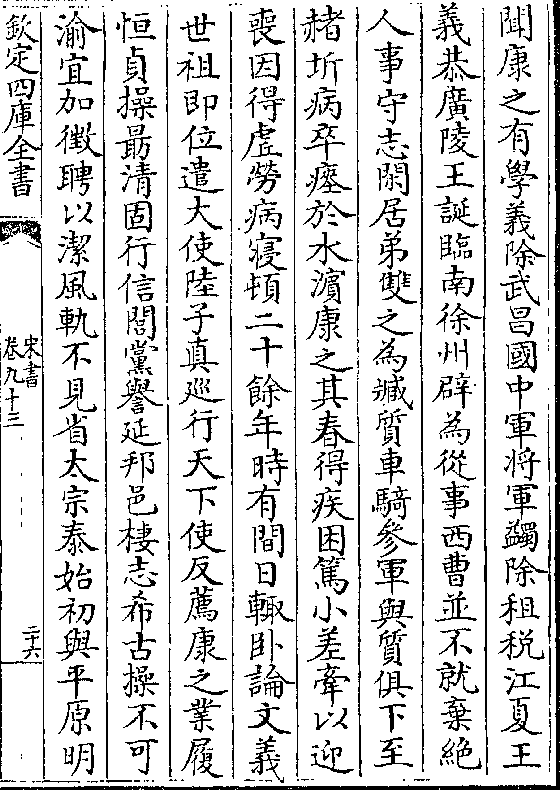 聞康之有學義除武昌國中軍將軍蠲除租税江夏王
義恭廣陵王誕臨南徐州辟為從事西曹並不就棄絶
人事守志閑居弟雙之為臧質車騎參軍與質俱下至
赭圻病卒瘞於水濵康之其春得疾困篤小差牽以迎
喪因得虚勞病寝頓二十餘年時有間日輙卧論文義
世祖即位遣大使陸子真巡行天下使反薦康之業履
恒貞操朂清固行信閭黨譽延邦邑棲志希古操不可
渝宜加徵聘以潔風軌不見省太宗泰始初與平原明
欽定四庫全書
宋書
卷九十三
二十六